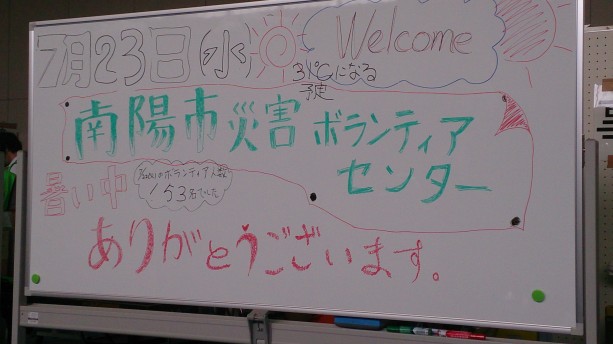 7月23日(水) Welcome
31℃になる
予定
南陽市災害ボランティア
センター
暑い中
のボランティア人数
153名でした
ありがとうございます。